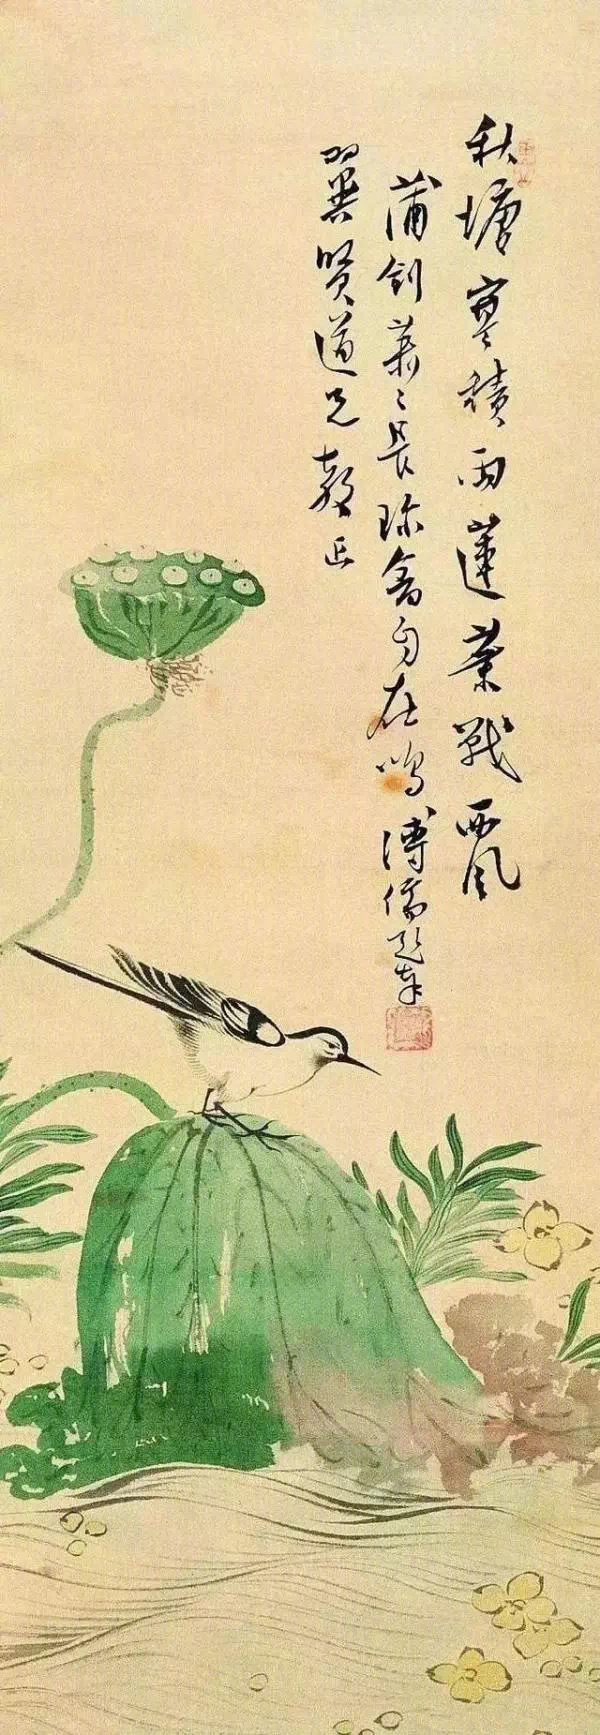 秋塘寒積雨蓮葉戰西風
蒲劍長珍禽自在鳴溥儒題奉
翼賢道兄教正